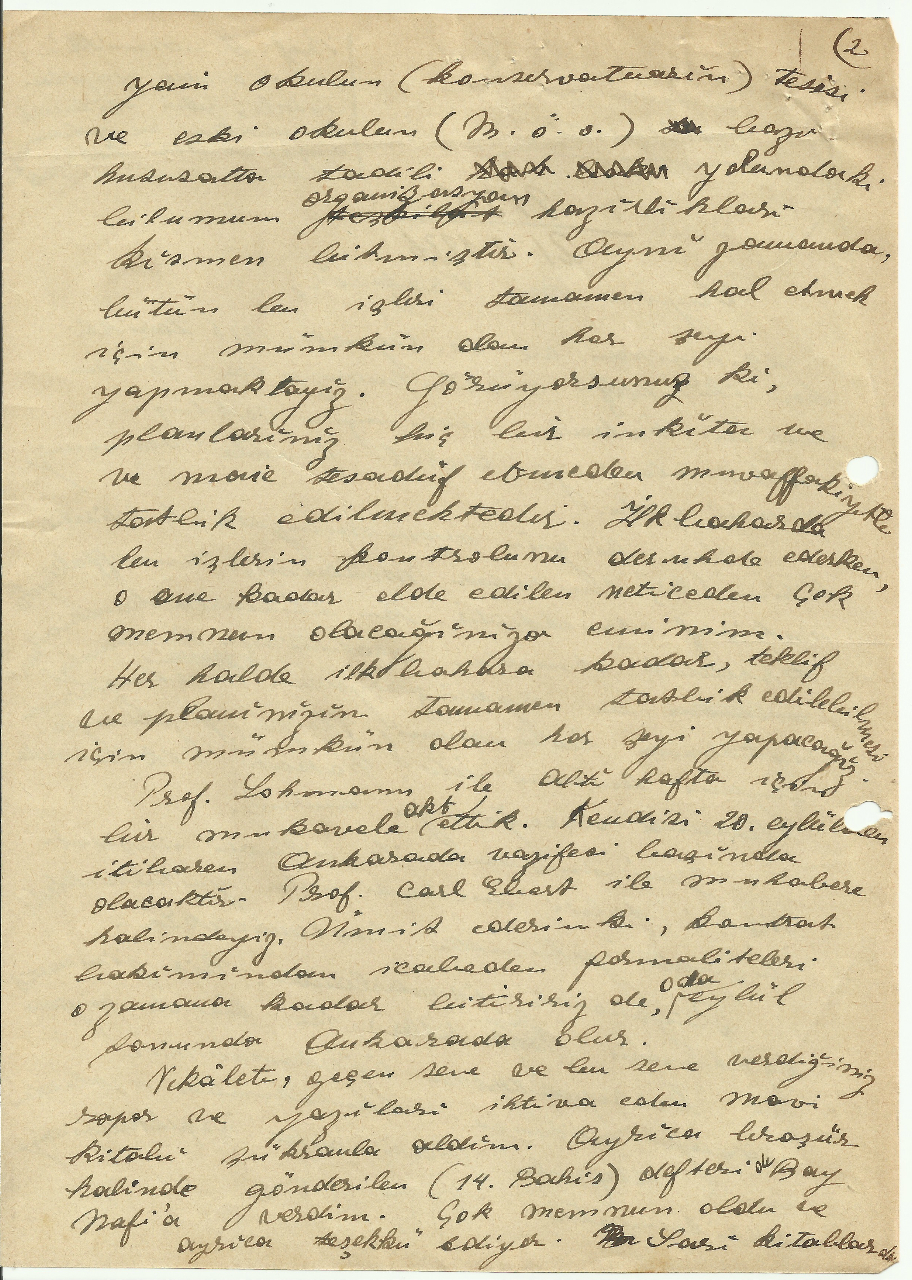 (2
Yeni okulun (konservatuarın) tesisi
ve eski okulun (M. ö. o.) bazı
hususatta tadili yolundaki
bilumum organizasyon hazırlıkları
kısmen bitmiştir. Ayni zamanda,
bütün bu işleri tamamen hal etmek
için mümkün olan her şeyi
yapmaktayız. Görüyorsunuz ki,
planlarınız hiç bir inkıta ve
ve manie tesadüf etmeden muvaffakiyetle
tatbik edilmektedir. İlkbaharda
bu işlerin kontrolunu deruhde ederken,
o ane kadar elde edilen neticeden çok
memnun olacağınıza eminim.
Her halde ilkbahara kadar, teklif
ve planınızın tamamen tatbik edilebilmesi
için mümkün olan her şeyi yapacağız.
Prof. Lohmann ile altı hafta için
bir mukavele akt ettik. Kendisi 20. eylülden
itibaren Ankarada vazifesi başında
olacaktır. Prof. Carl Ebert ile muhabere
halindeyiz. Ümit ederimki, kontrat
bakımından icabeden formaliteleri
o zamana kadar bitiririz de, oda eylül
sonunda Ankarada olur.
Vekâlete, geçen sene ve bu sene verdiğiniz
rapor ve yazıları ihtiva eden mavi
kitabı şükranla aldım. Ayrıca broşür
halinde gönderilen (14. Bahis) defteri de Bay
Nafi'a verdim. Çok memnun oldu ve
ayrıca teşekkü ediyor. Sarı kitablarda